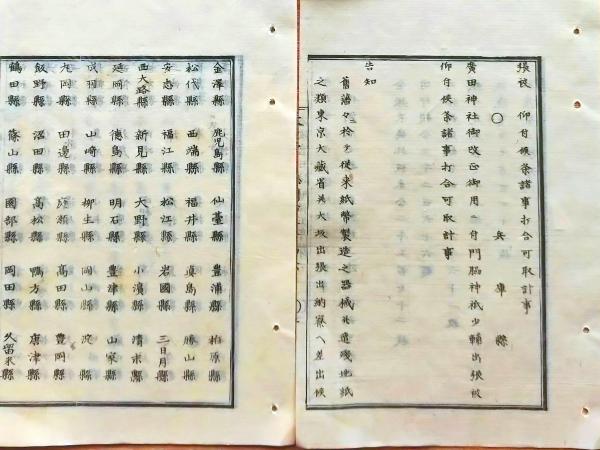 張被　仰付候条諸事打合可取計事
〇　兵庫縣
廣田神社御改正御用ニ付門脇神祇少輔出張被
仰付候条諸事打合可取計事
告知
舊藩々於テ従来紙幣製造之器械并遣殘地紙
之類東京大藏省并大坂出張出納寮ヘ差出候
金澤縣　鹿児島縣　仙臺縣　豊浦縣　柏原縣
松代縣　西端縣　福井縣　真島縣　勝山縣
安志縣　福江縣　松江縣　岩國縣　三日月縣
西大路縣　新見縣　大野縣　小濵縣　清末縣
延岡縣　德島縣　明石縣　豊津縣　山家縣
成羽縣　山崎縣　柳生縣　岡山縣　淀縣
丸岡縣　田邊縣　縣　高田縣　豊岡縣
飯野縣　沼田縣　高松縣　鴨方縣　唐津縣
鶴田縣　篠山縣　園部縣　岡田縣　久留米縣